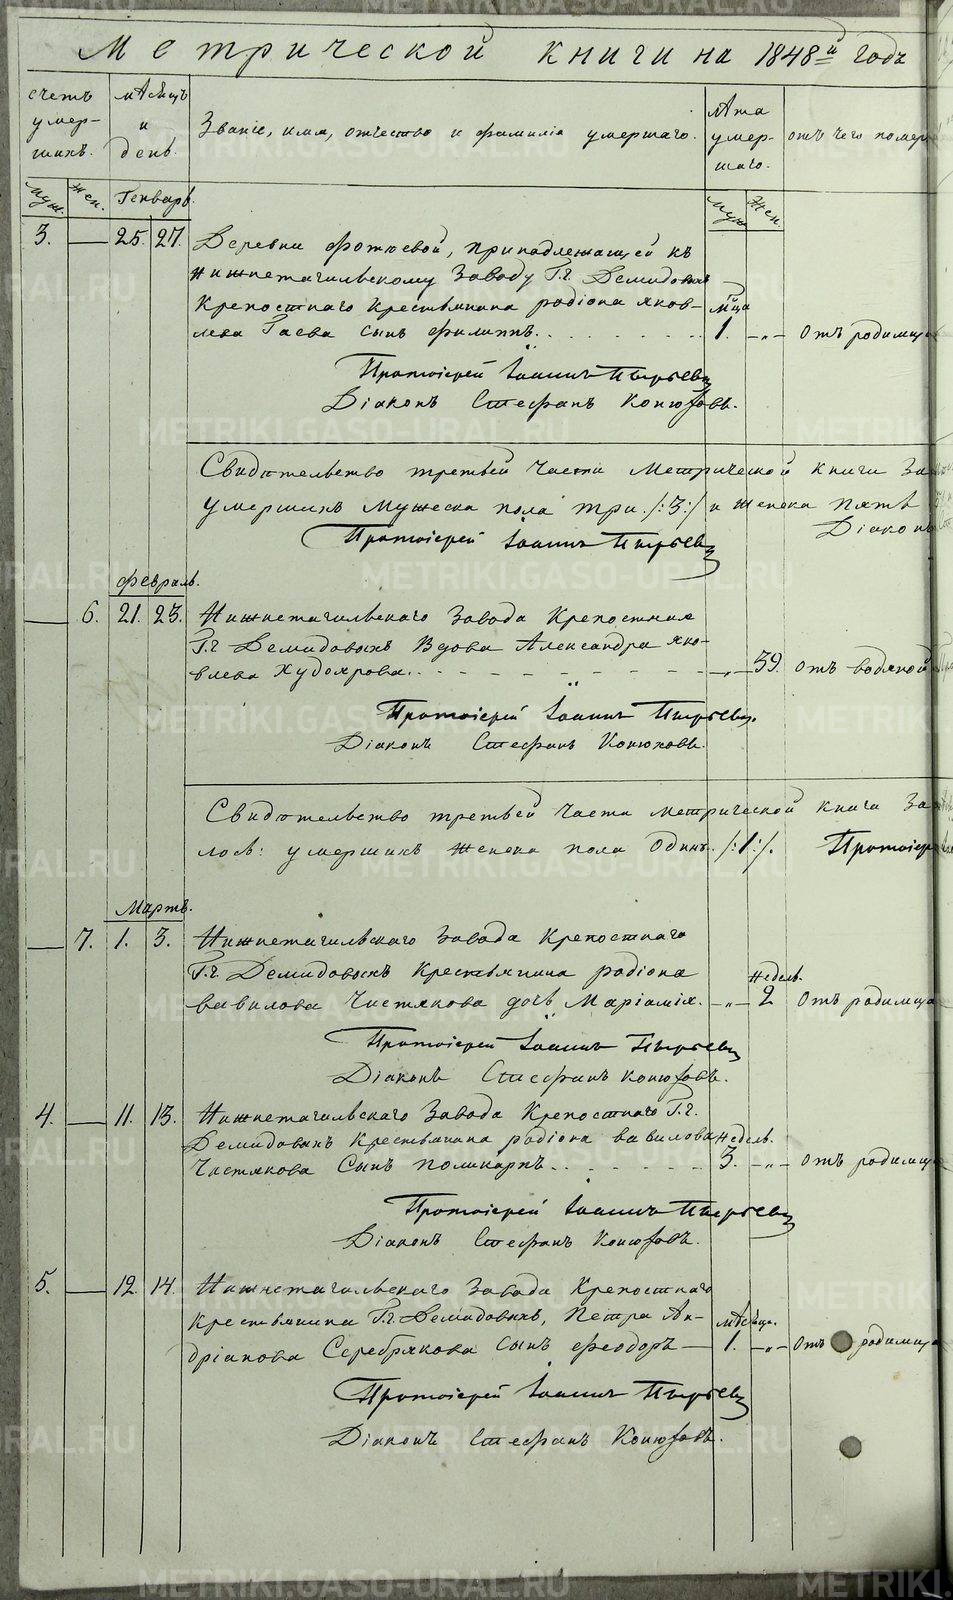 Метрической книги на 1848й годъ
счетъ умер-шихъ.
мѣсяцъ и день.
Званіе, имя, отчество и фамилія умершаго.
лѣта умер-шаго.
отъ чего помер
Муж. Жен.
Генварь.
Муж. Жен.
3. — 25. 27. Деревни Фотѣевой, принадлежащей къ
Нижнетагильскому заводу Г.г. Демидовыхъ
Крепостнаго крестьянина Родіона Яков-
лева Гаева сынъ Филиппъ. мца 1. — „ — отъ родимца
Протоіерей Іоаннъ Пырьевъ
Діаконъ Стефанъ Конюховъ.
Свидѣтельство третьей части Метрической книги За
умершихъ мужеска пола три /:3:/ и женска пять
Протоіерей Іоаннъ Пырьевъ
Діаконъ
Февраль.
— 6. 21. 23. Нижнетагильскаго завода Крепостная
Г.г. Демидовыхъ вдова Александра Яко-
влева Худоярова. — „ — 59. отъ водяной
Протоіерей Іоаннъ Пырьевъ.
Діаконъ Стефанъ Конюховъ.
Свидѣтельство третьей части метрической книги За
лось: умершихъ женска пола одинъ /:1:/. Протоіер
Мартъ.
— 7. 1. 3. Нижнетагильскаго завода Крепостнаго
Г.г. Демидовыхъ крестьянина Родіона
Вавилова Чистякова дочь Маріамія. — „ — недель. 2 отъ родимца
Протоіерей Іоаннъ Пырьевъ
Діаконъ Стефанъ Конюховъ.
4. — 11. 13. Нижнетагильскаго завода Крепостнаго Г.г.
Демидовыхъ крестьянина Родіона Вавилова недель.
Чистякова сынъ Поликарпъ. 3. — „ — отъ родимца
Протоіерей Іоаннъ Пырьевъ
Діаконъ Стефанъ Конюховъ.
5. — 12. 14. Нижнетагильскаго завода Крепостнаго
крестьянина Г.г. Демидовыхъ, Петра Ан-
дріанова Серебрякова сынъ Феодоръ — мѣсяца. 1. — „ — отъ родимца
Протоіерей Іоаннъ Пырьевъ
Діаконъ Стефанъ Конюховъ.
METRIKI.GASO-URAL.RU